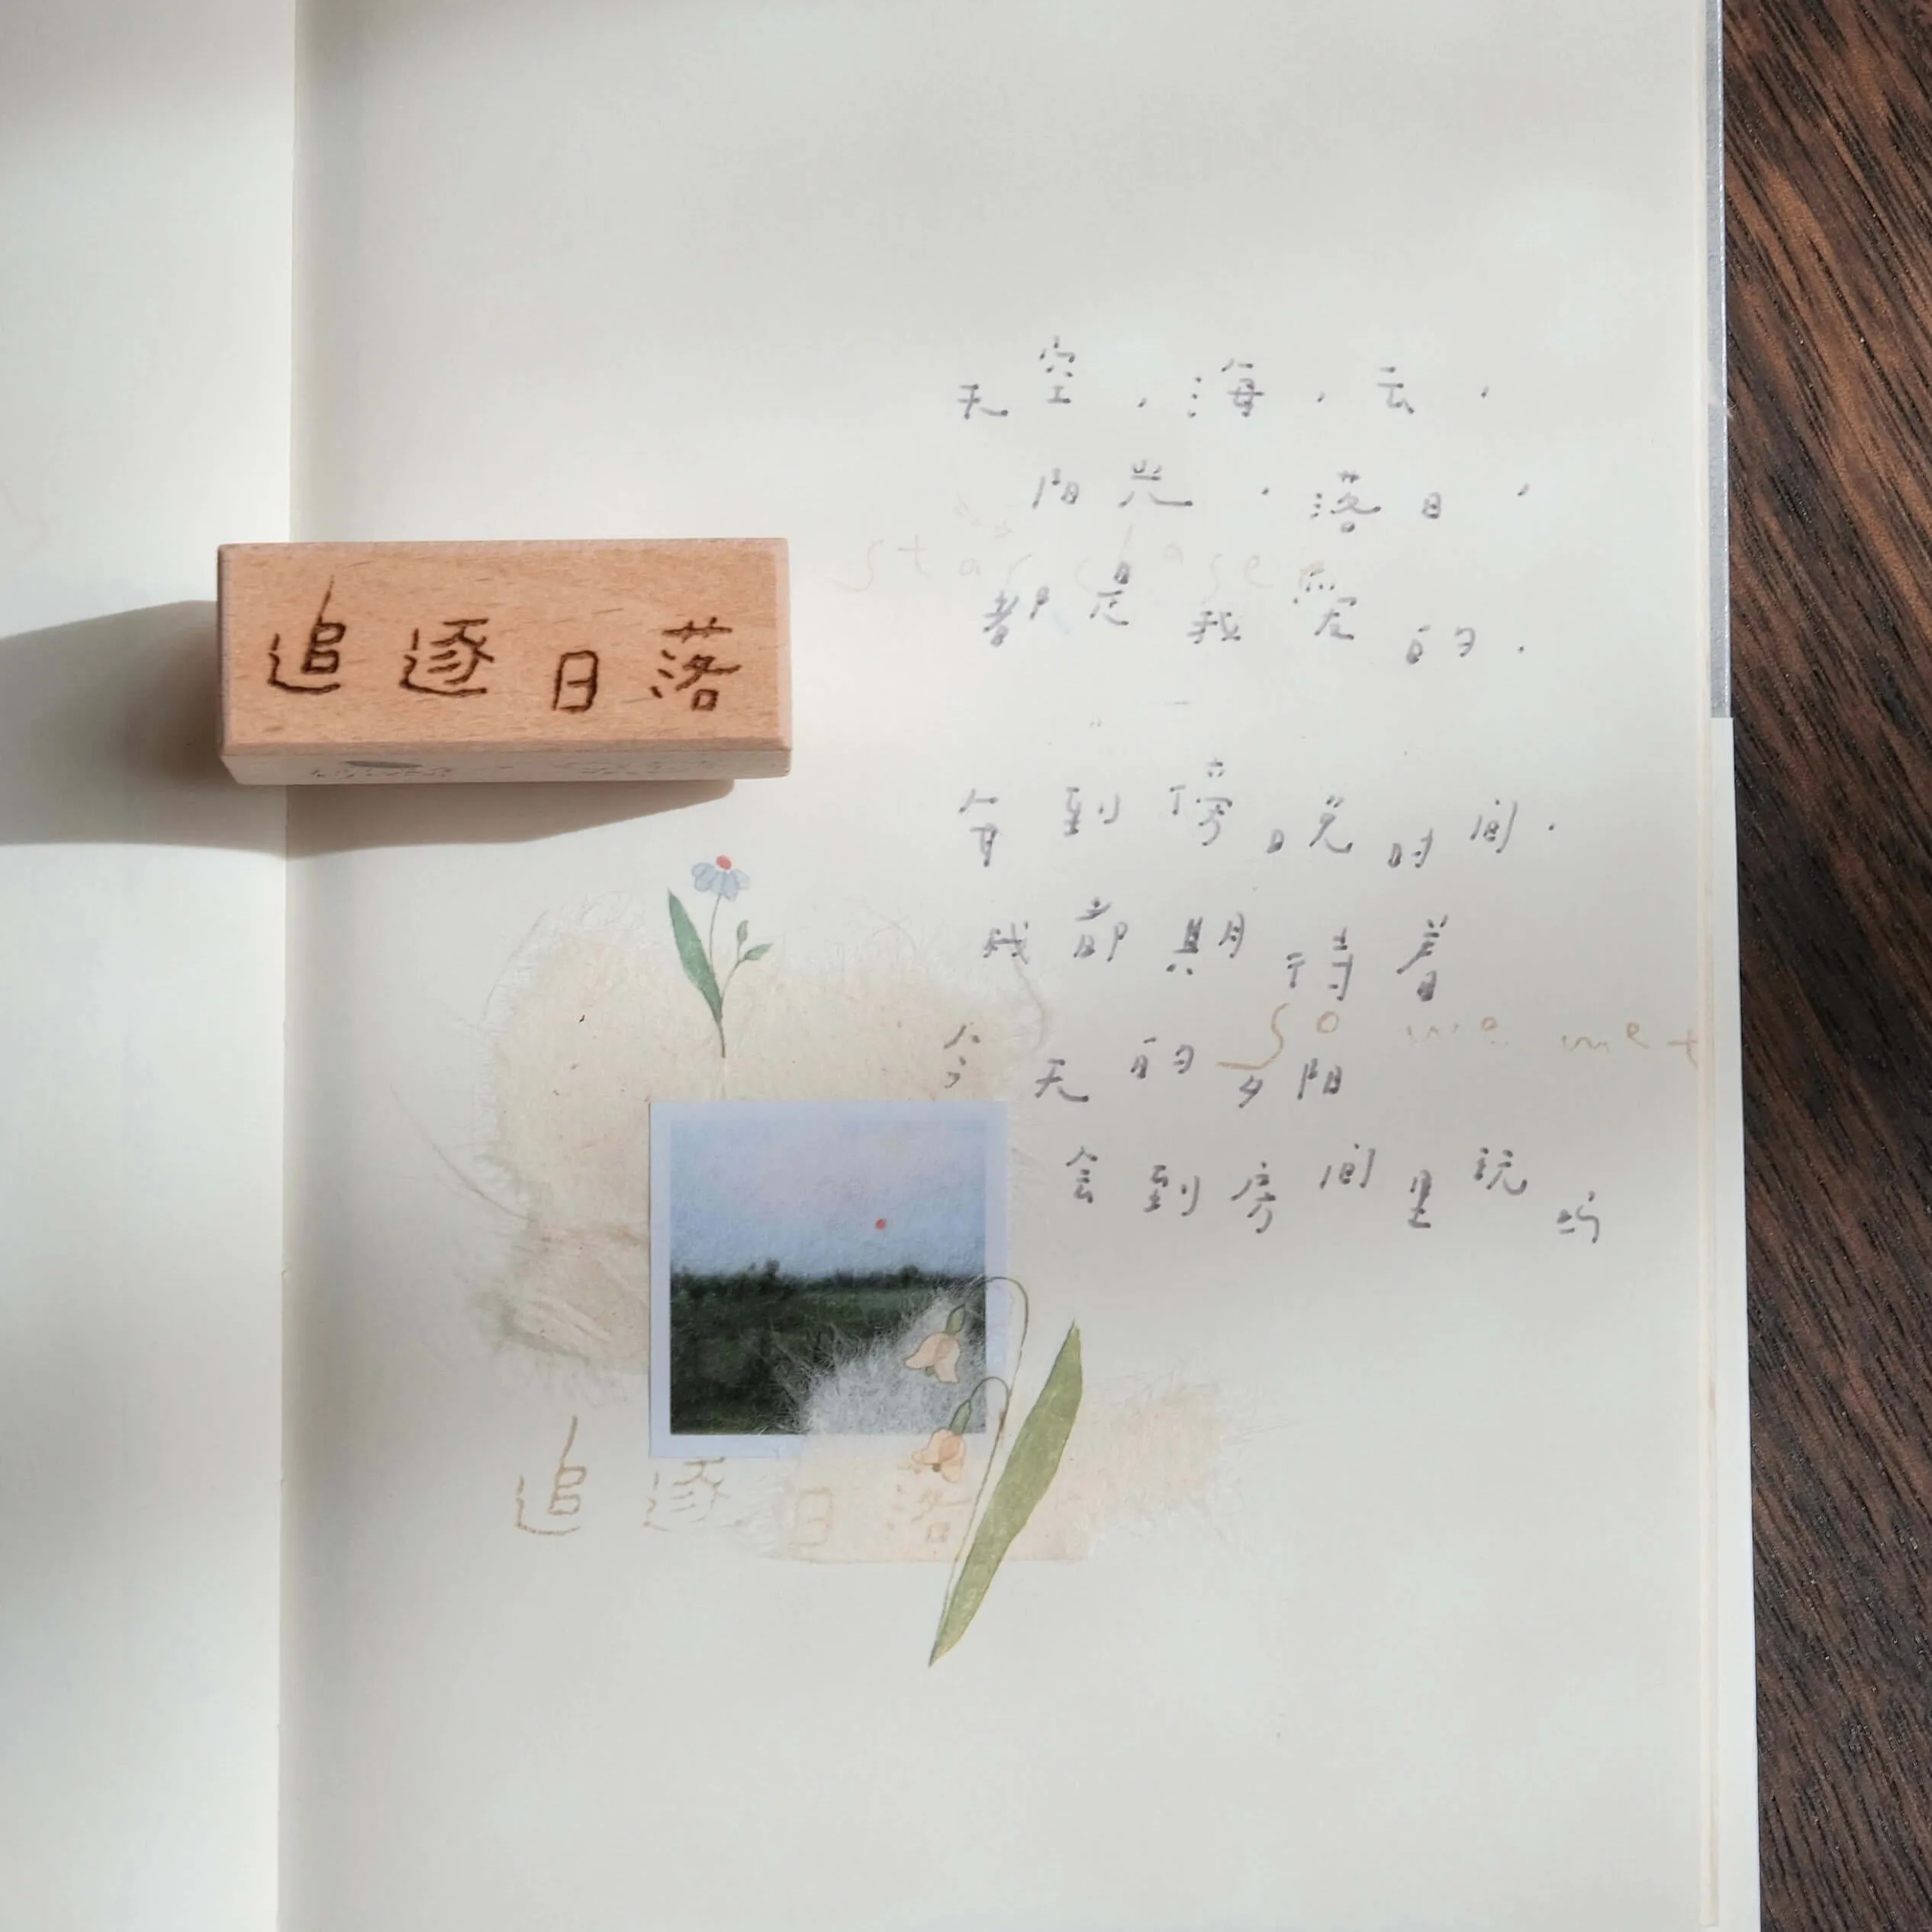 追逐日落
天空，海，云，
阳光，落日，
star chaser
都是我爱的．
每到傍晚时间．
我都期待着
so we met
今天的夕阳
会到房间里玩吗
追逐日落